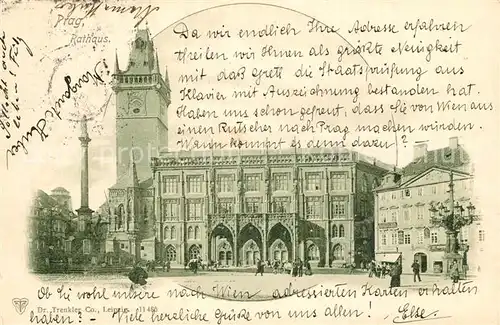 Prag.
Rathhaus.
Da wir endlich Ihre Adresse erfahren
theilen wir Ihnen als größte Neuigkeit
mit daß Grett die Staatsprüfung aus
Klavier mit Auszeichnung bestanden hat.
Haben uns schon gefreut, dass Sie von Wien aus
einen Rutscher nach Prag machen würden.
Wann kommt es denn dazu?...
Ob Sie wohl unsere nach Wien adressierten Karten erhalten
Dr. Trenkler Co., Leipzig. 11486
haben? - Viele herzliche Grüße von uns allen! Else.
Margarethe